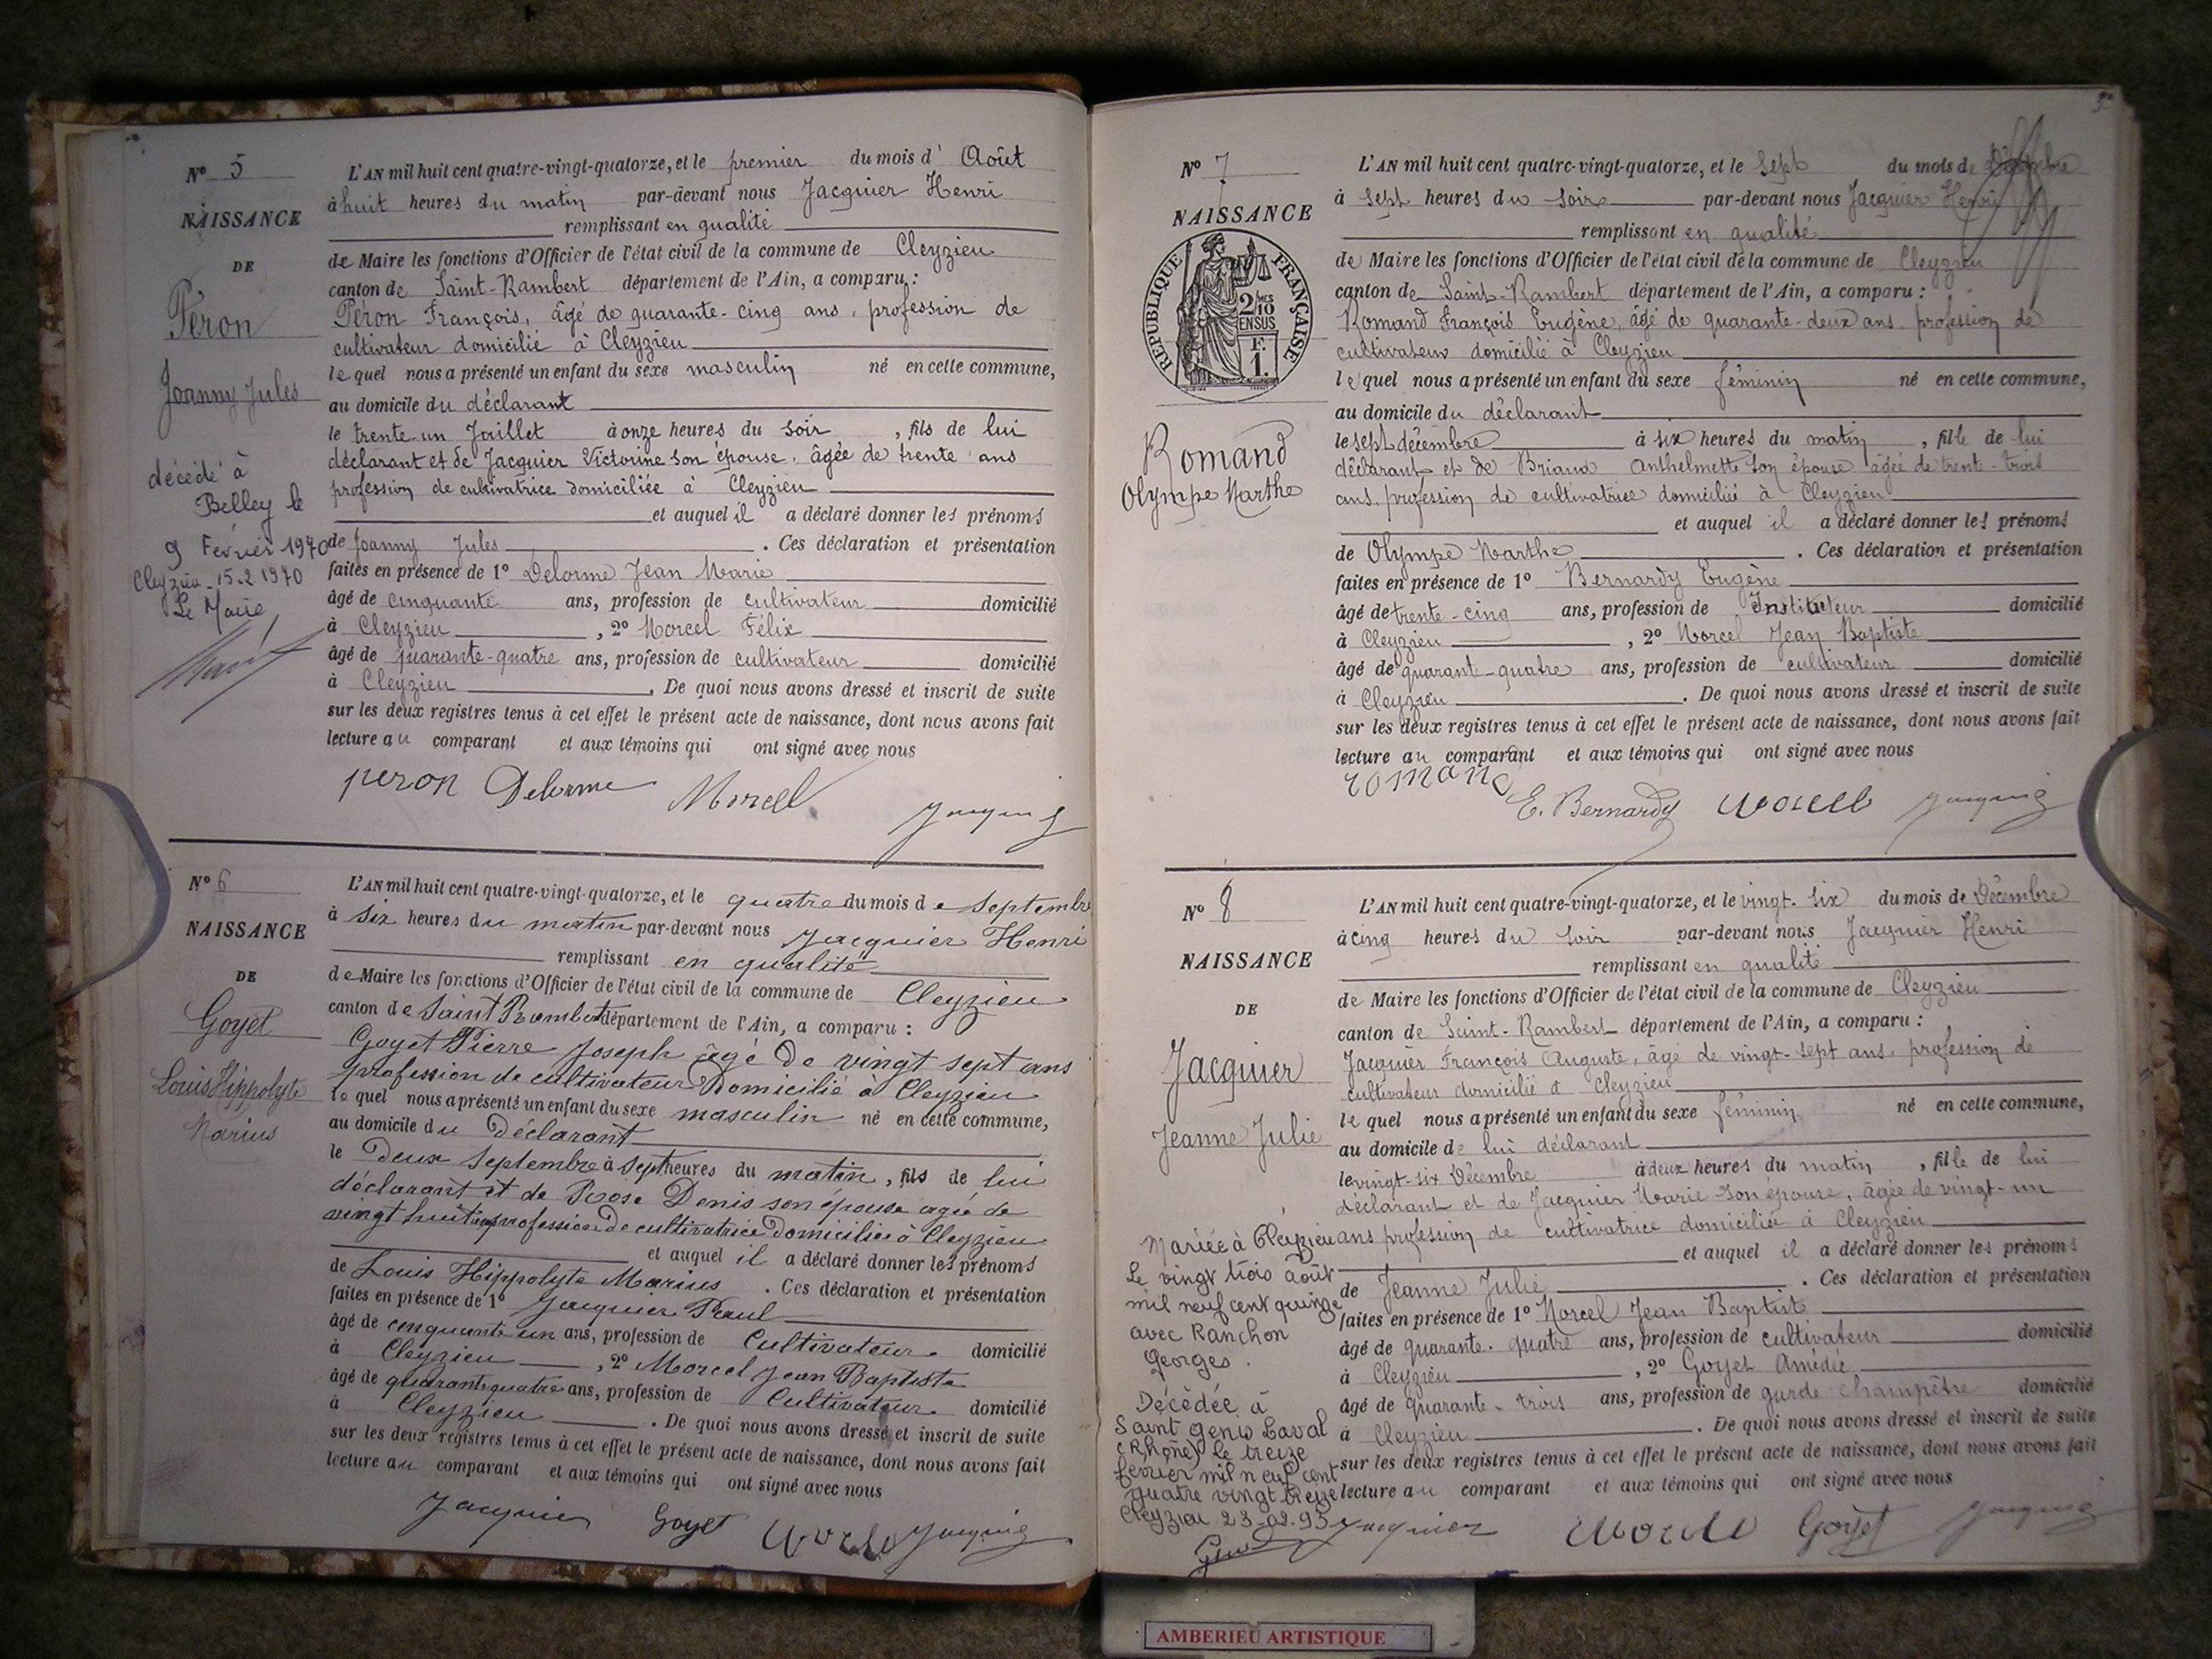 Nº 5
NAISSANCE
DE
Péron
Joanny Jules
décédé à
Belley le
9 Février 1970
Cleyzieu 15.2 1970
Le Maire
L'AN mil huit cent quatre-vingt-quatorze, et le premier du mois d' Août
à huit heures du matin par-devant nous Jacquier Henri
remplissant en qualité
de Maire les fonctions d'Officier de l'état civil de la commune de Cleyzieu
canton de Saint-Rambert département de l'Ain, a comparu :
Péron François, âgé de quarante-cinq ans, profession de
cultivateur domicilié à Cleyzieu
lequel nous a présenté un enfant du sexe masculin né en cette commune,
au domicile du déclarant
le trente un Juillet à onze heures du soir, fils de lui
déclarant et de Jacquier Victorine son épouse, âgée de trente ans
profession de cultivatrice domiciliée à Cleyzieu
et auquel il a déclaré donner les prénoms
de Joanny Jules. Ces déclaration et présentation
faites en présence de 1º Delorme Jean Marie
âgé de cinquante ans, profession de cultivateur domicilié
à Cleyzieu, 2º Morcel Félix
âgé de quarante-quatre ans, profession de cultivateur domicilié
à Cleyzieu. De quoi nous avons dressé et inscrit de suite
sur les deux registres tenus à cet effet le présent acte de naissance, dont nous avons fait
lecture au comparant et aux témoins qui ont signé avec nous
peron Delorme Morcel Jacquier
Nº 6
NAISSANCE
DE
Goyet
Louis Hippolyte
Marius
L'AN mil huit cent quatre-vingt-quatorze, et le quatre du mois de Septembre
à six heures du matin par-devant nous Jacquier Henri
remplissant en qualité
de Maire les fonctions d'Officier de l'état civil de la commune de Cleyzieu
canton de Saint Rambert département de l'Ain, a comparu :
Goyet Pierre Joseph âgé de vingt sept ans
profession de cultivateur domicilié à Cleyzieu
lequel nous a présenté un enfant du sexe masculin né en cette commune,
au domicile du Déclarant
le Deux Septembre à sept heures du matin, fils de lui
déclarant et de Rose Denis son épouse agée de
vingt huit ans profession de cultivatrice domiciliée à Cleyzieu
et auquel il a déclaré donner les prénoms
de Louis Hippolyte Marius. Ces déclaration et présentation
faites en présence de 1º Jacquier Paul
âgé de cinquante un ans, profession de Cultivateur domicilié
à Cleyzieu, 2º Morcel Jean Baptiste
âgé de quarante quatre ans, profession de Cultivateur domicilié
à Cleyzieu. De quoi nous avons dressé et inscrit de suite
sur les deux registres tenus à cet effet le présent acte de naissance, dont nous avons fait
lecture au comparant et aux témoins qui ont signé avec nous
Jacquier Goyet Morcel Jacquier
Nº 7
NAISSANCE
RÉPUBLIQUE FRANÇAISE
2/10 MES
EN SUS
F.
1.
Romand
Olympe Marthe
L'AN mil huit cent quatre-vingt-quatorze, et le Sept du mois de Décembre
à sept heures du soir par-devant nous Jacquier Henri
remplissant en qualité
de Maire les fonctions d'Officier de l'état civil de la commune de Cleyzieu
canton de Saint-Rambert département de l'Ain, a comparu :
Romand François Eugène, âgé de quarante-deux ans, profession de
cultivateur domicilié à Cleyzieu
lequel nous a présenté un enfant du sexe féminin né en cette commune,
au domicile du déclarant
le sept décembre à six heures du matin, fille de lui
déclarant et de Briaux Anthelmette son épouse âgée de trente-trois
ans, profession de cultivatrice domiciliée à Cleyzieu
et auquel il a déclaré donner les prénoms
de Olympe Marthe. Ces déclaration et présentation
faites en présence de 1º Bernardy Eugène
âgé de trente-cinq ans, profession de Instituteur domicilié
à Cleyzieu, 2º Morcel Jean Baptiste
âgé de quarante-quatre ans, profession de cultivateur domicilié
à Cleyzieu. De quoi nous avons dressé et inscrit de suite
sur les deux registres tenus à cet effet le présent acte de naissance, dont nous avons fait
lecture au comparant et aux témoins qui ont signé avec nous
romand E. Bernardy Morcel Jacquier
Nº 8
NAISSANCE
DE
Jacquier
Jeanne Julie
Mariée à Cleyzieu
Le vingt trois août
mil neuf cent quinze
avec Ranchon
Georges.
Décédée à
Saint Genis Laval
(Rhône) le treize
ferrier mil neuf cent
quatre vingt treize
Cleyzieu 23-02-93
L'AN mil huit cent quatre-vingt-quatorze, et le vingt-six du mois de Décembre
à cinq heures du soir par-devant nous Jacquier Henri
remplissant en qualité
de Maire les fonctions d'Officier de l'état civil de la commune de Cleyzieu
canton de Saint-Rambert département de l'Ain, a comparu :
Jacquier François Auguste, âgé de vingt-sept ans, profession de
cultivateur domicilié à Cleyzieu
lequel nous a présenté un enfant du sexe féminin né en cette commune,
au domicile de lui déclarant
le vingt-six Décembre à deux heures du matin, fille de lui
déclarant et de Jacquier Marie son épouse, âgée de vingt-un
ans profession de cultivatrice domiciliée à Cleyzieu
et auquel il a déclaré donner les prénoms
de Jeanne Julie. Ces déclaration et présentation
faites en présence de 1º Morcel Jean Baptiste
âgé de quarante-quatre ans, profession de cultivateur domicilié
à Cleyzieu, 2º Goyet Amédée
âgé de quarante-trois ans, profession de garde champêtre domicilié
à Cleyzieu. De quoi nous avons dressé et inscrit de suite
sur les deux registres tenus à cet effet le présent acte de naissance, dont nous avons fait
lecture au comparant et aux témoins qui ont signé avec nous
Jacquier Morcel Goyet Jacquier
AMBERIEU ARTISTIQUE